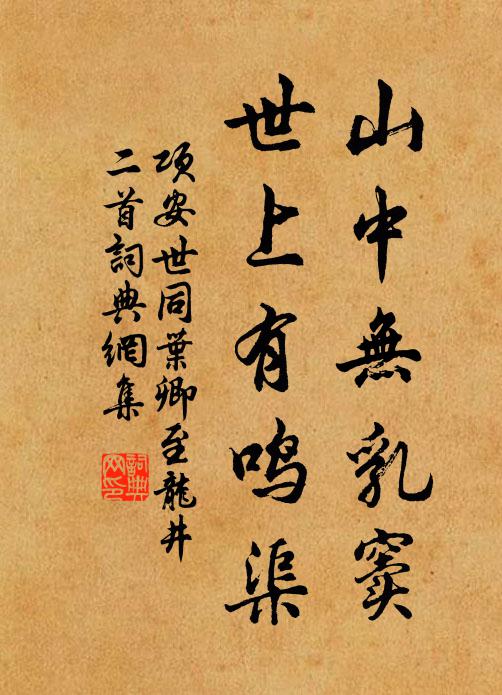 山中無乳窦
世上有鸣渠
项安世同葉卿至龍井
二首詞典網集
詞典
网印